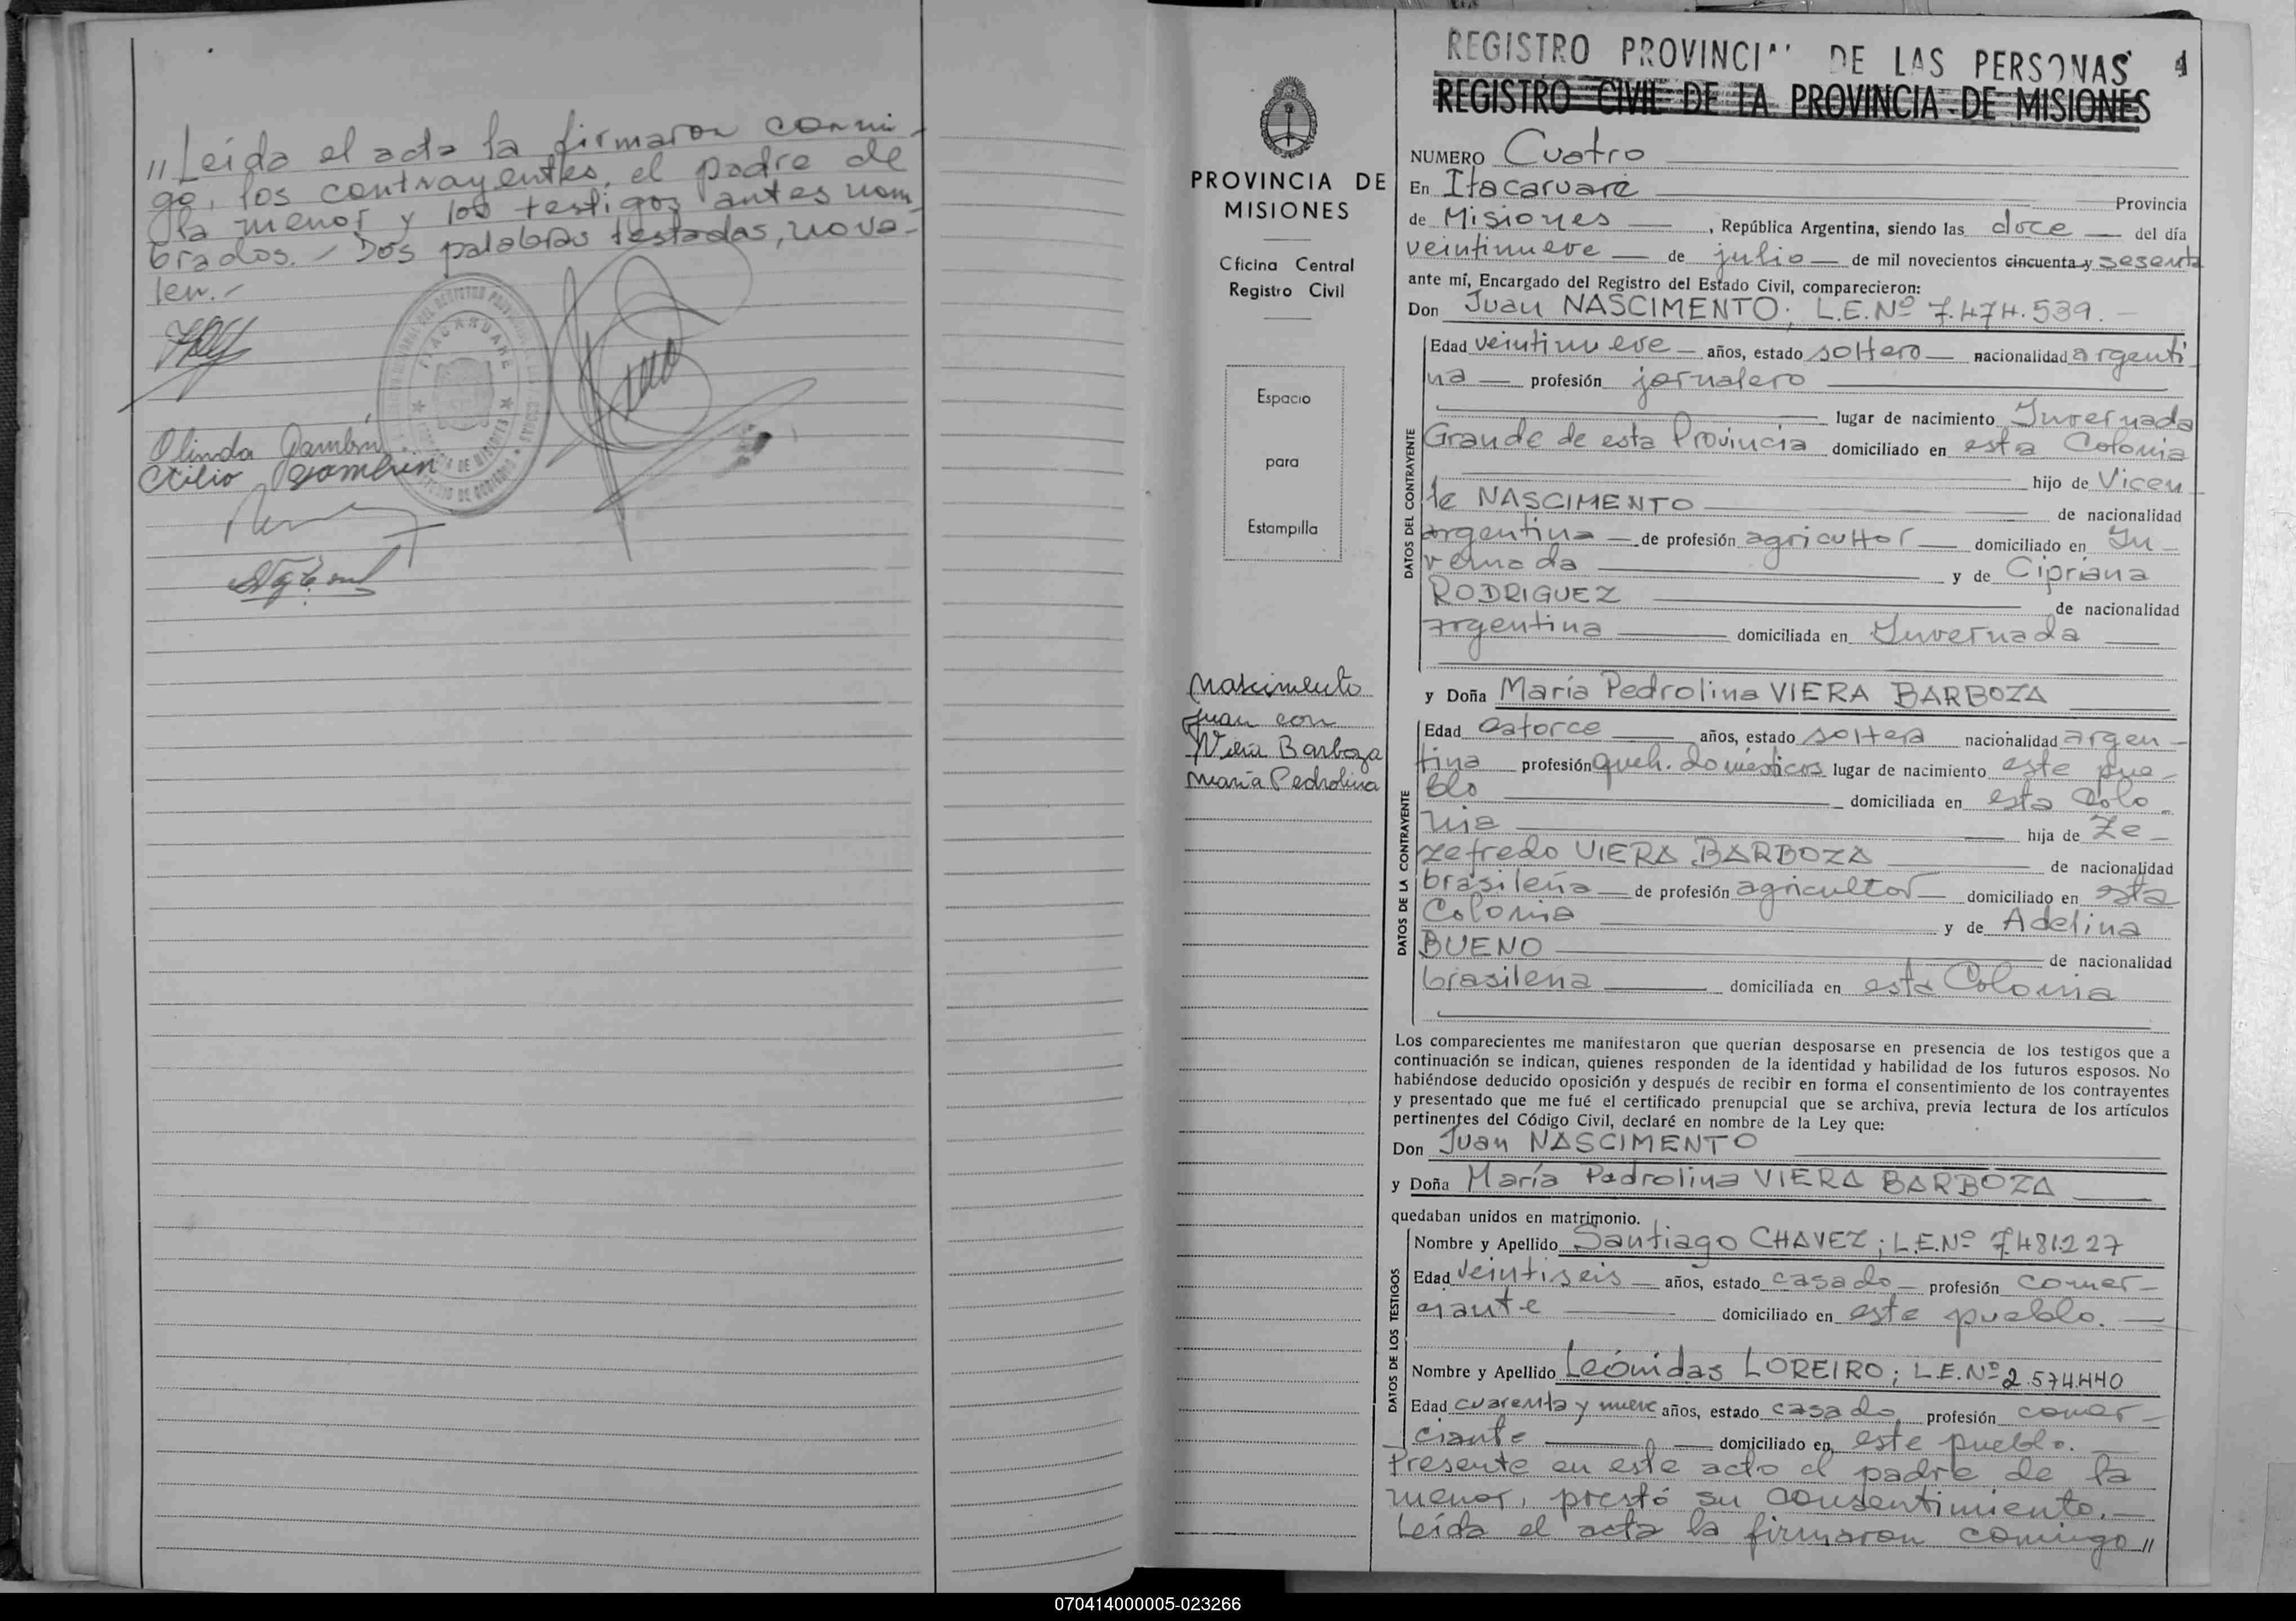 "Leída el acta la firmaron conmi-
go, los contrayentes, el padre de
la menor y los testigos antes nom-
brados. - Dos palabras testadas, no va-
len.-
Olinda Gambin
Atilio Gambin
ITACARUARE
PROVINCIA DE
MISIONES
Oficina Central
Registro Civil
Espacio
para
Estampilla
Nascimento
Juan con
Viera Barboza
María Pedrolina
REGISTRO PROVINCI DE LAS PERSONAS
REGISTRO CIVIL DE LA PROVINCIA DE MISIONES
NUMERO Cuatro
En Itacaruaré Provincia
de Misiones, República Argentina, siendo las doce del día
veintinueve de julio de mil novecientos cincuenta y sesenta
ante mí, Encargado del Registro del Estado Civil, comparecieron:
Don Juan NASCIMENTO; L.E.Nº 7.474.539.-
DATOS DEL CONTRAYENTE
Edad veintinueve años, estado soltero nacionalidad argenti
na profesión jornalero
lugar de nacimiento Invernada
Grande de esta Provincia domiciliado en esta Colonia
hijo de Vicen
te NASCIMENTO de nacionalidad
argentina de profesión agricultor domiciliado en In-
vernada y de Cipriana
RODRIGUEZ de nacionalidad
argentina domiciliada en Invernada
y Doña María Pedrolina VIERA BARBOZA
DATOS DE LA CONTRAYENTE
Edad catorce años, estado soltera nacionalidad argen-
tina profesión queh. domésticos lugar de nacimiento este pue-
blo domiciliada en esta Colo-
nia hija de Ze-
zefredo VIERA BARBOZA de nacionalidad
brasileña de profesión agricultor domiciliado en esta
Colonia y de Adelina
BUENO de nacionalidad
brasilena domiciliada en esta Colonia
Los comparecientes me manifestaron que querían desposarse en presencia de los testigos que a
continuación se indican, quienes responden de la identidad y habilidad de los futuros esposos. No
habiéndose deducido oposición y después de recibir en forma el consentimiento de los contrayentes
y presentado que me fué el certificado prenupcial que se archiva, previa lectura de los artículos
pertinentes del Código Civil, declaré en nombre de la Ley que:
Don Juan NASCIMENTO
y Doña María Pedrolina VIERA BARBOZA
quedaban unidos en matrimonio.
DATOS DE LOS TESTIGOS
Nombre y Apellido Santiago CHAVEZ; L.E.Nº 7.481.227
Edad veintiseis años, estado casado profesión comer-
ciante domiciliado en este pueblo.
Nombre y Apellido Leónidas LOREIRO; L.E.Nº 2.574.440
Edad cuarenta y nueve años, estado casado profesión comer-
ciante domiciliado en este pueblo.
Presente en este acto el padre de la
menor, prestó su consentimiento.-
Leída el acta la firmaron comingo"
070414000005-023266